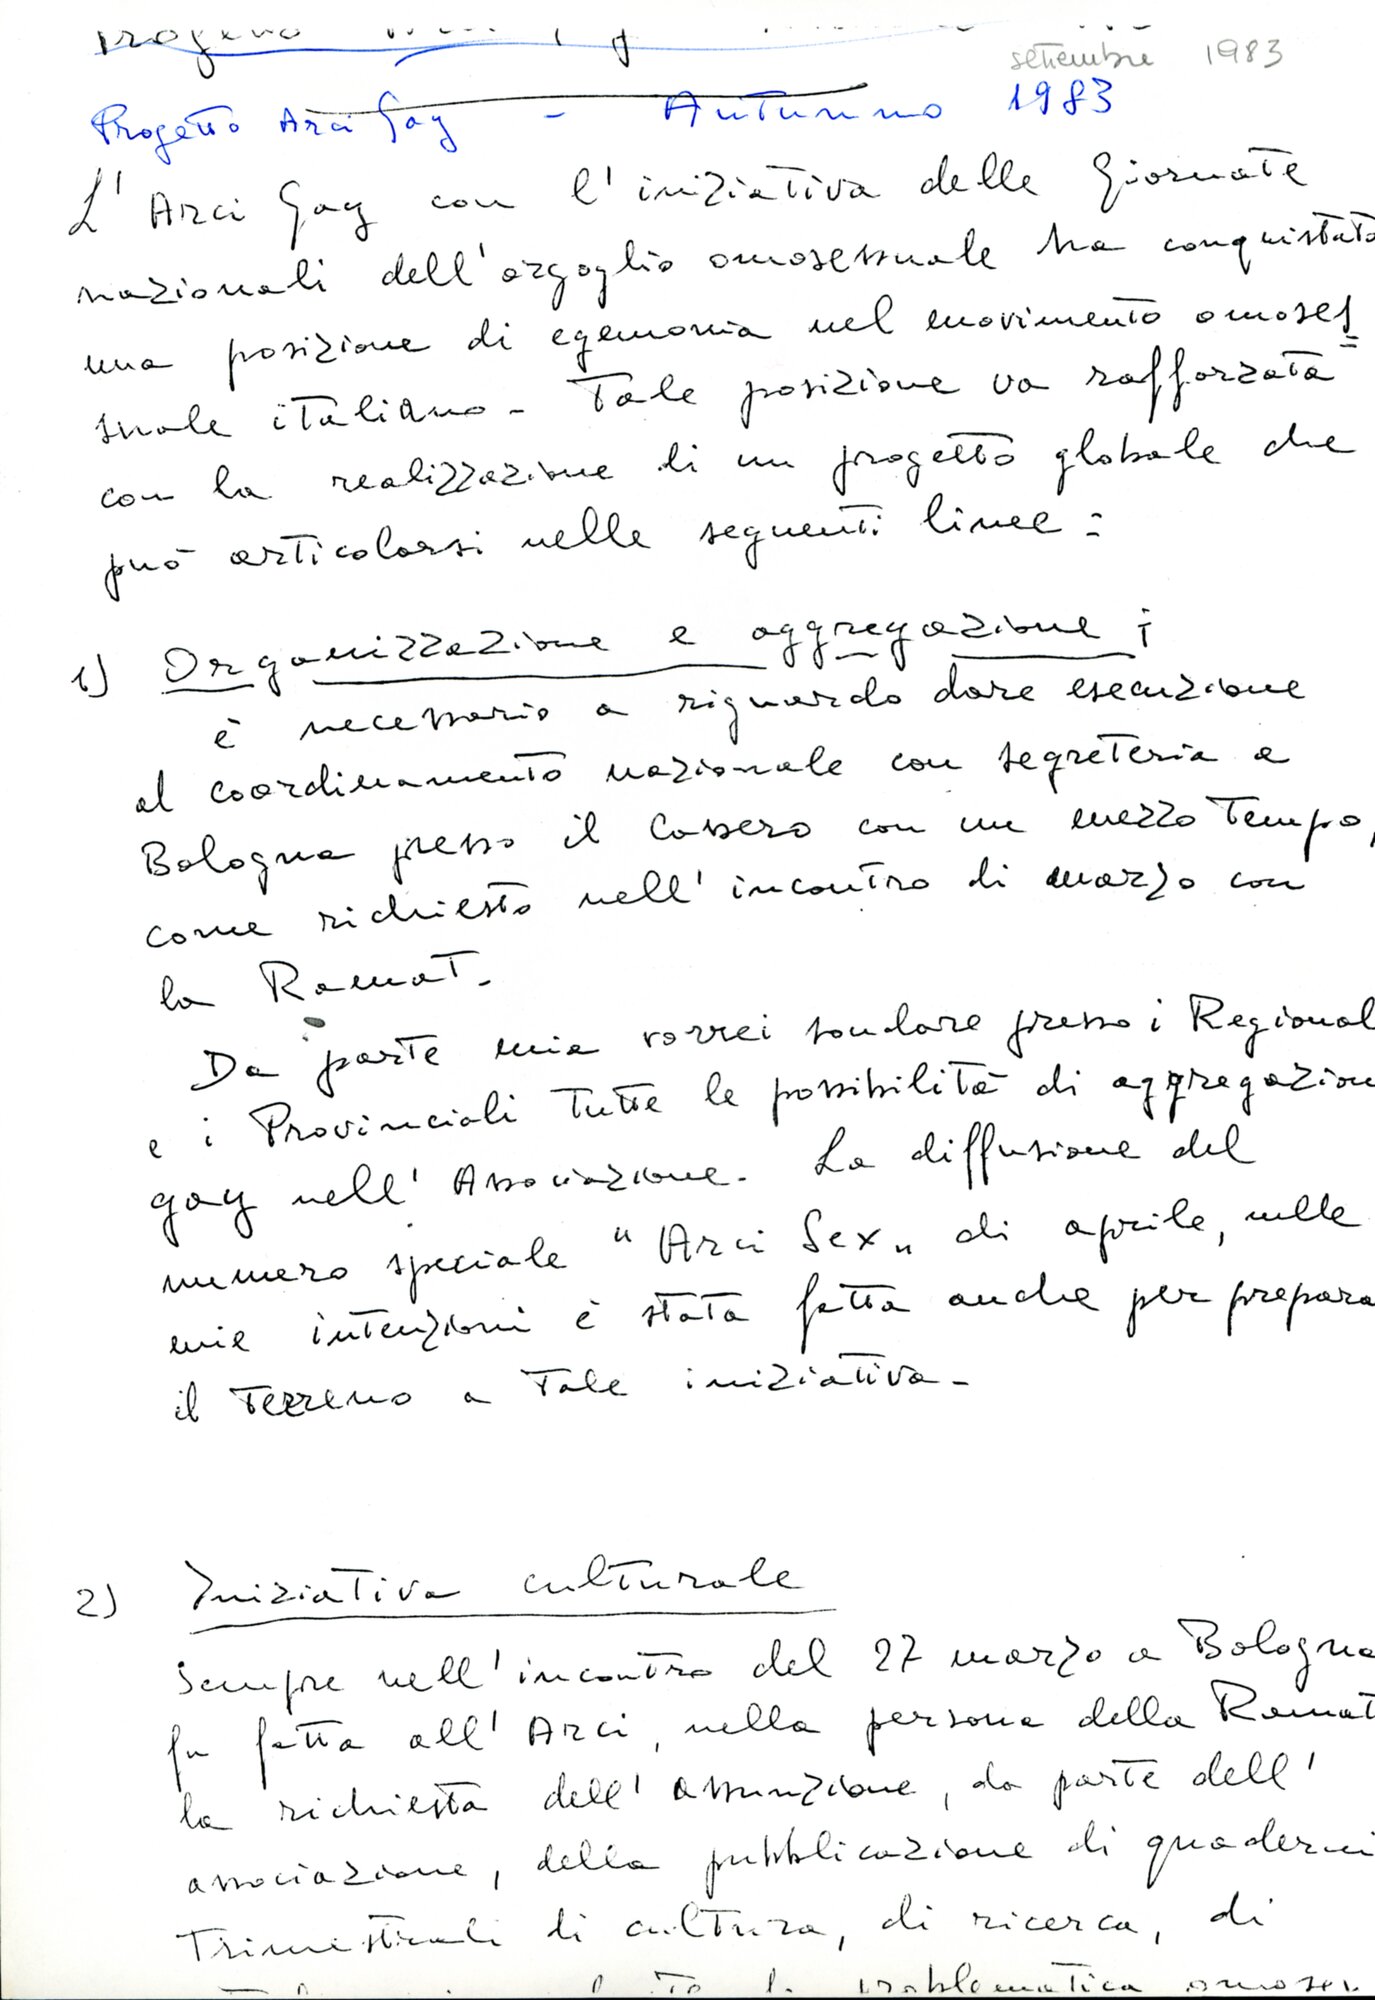 Progetto Arci Gay
settembre 1983
Progetto Arci Gay - Autunno 1983
L'Arci Gay con l'iniziativa delle Giornate
nazionali dell'orgoglio omosessuale ha conquistato
una posizione di egemonia nel movimento omoses
suale italiano - Tale posizione va rafforzata
con la realizzazione di un progetto globale che
può articolarsi nelle seguenti linee:
1) Organizzazione e aggregazione;
è necessario a riguardo dare esecuzione
al coordinamento nazionale con segreteria a
Bologna presso il Cassero con un mezzo tempo,
come richiesto nell'incontro di marzo con
la Ramat.
Da parte mia vorrei sondare presso i Regional
e i Provinciali tutte le possibilità di aggregazion
gay nell'Associazione. La diffusione del
numero speciale "Arci Sex" di aprile, nelle
mie intenzioni è stata fatta anche per prepara
il terreno a tale iniziativa -
2) Iniziativa culturale
Sempre nell'incontro del 27 marzo a Bologna
fu fatta all'Arci, nella persona della Ramat
la richiesta dell'assunzione, da parte dell'
associazione, della pubblicazione di quaderni
trimestrali di cultura, di ricerca, di
problematica omoses